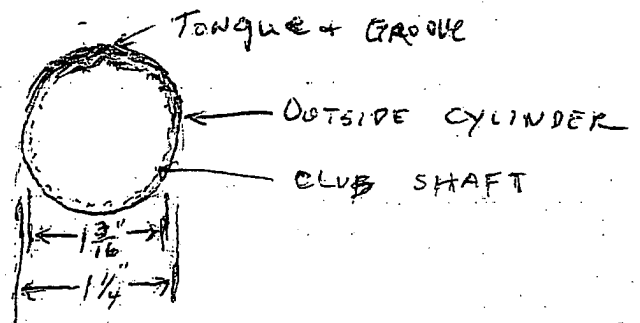 TONGUE + GROOVE
OUTSIDE CYLINDER
CLUB SHAFT
1 3/16"
1 1/4"